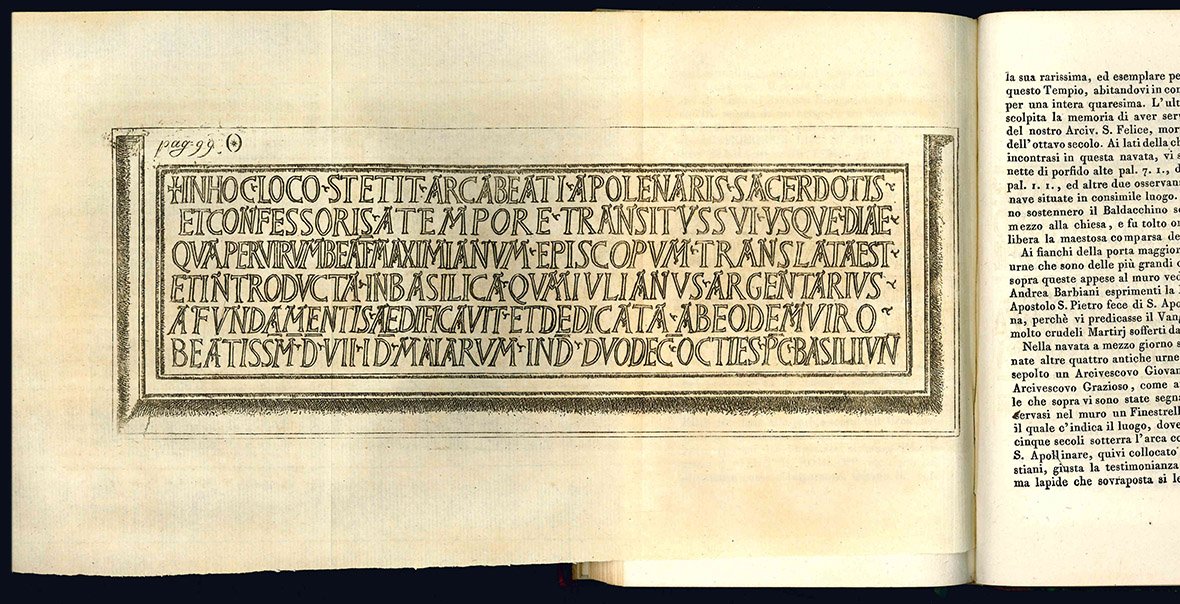 pag. 99.
+IN HOC·LOCO·STETIT·ARCA BEATI·APOLENARIS·SACERDOTIS·
ET CONFESSORIS·A TEMPORE·TRANSITVS SVI·VSQVE·DIAE·
QVA PER VIRVM BEAT MAXIMIANVM·EPISCOPVM·TRANSLATA EST·
ET INTRODVCTA·IN BASILICA·QVAM IVLIANVS·ARGENTARIVS·
A FVNDAMENTIS AEDIFICAVIT·ET DEDICATA·AB EODEM VIRO·
BEATISSM·D·VII ID·MAIARVM·IND·DVODEC·OCTIES·PC·BASILII VN
la sua rarissima, ed esemplare pe
questo Tempio, abitandovi in con
per una intera quaresima. L'ult
scolpita la memoria di aver serv
del nostro Arciv. S. Felice, mor
dell'ottavo secolo. Ai lati della ch
incontrasi in questa navata, vi s
nette di porfido alte pal. 7. 1., d
pal. 1. 1., ed altre due osservan
nave situate in consimile luogo.
no sostennero il Baldacchino so
mezzo alla chiesa, e fu tolto on
libera la maestosa comparsa de
Ai fianchi della porta maggior
urne che sono delle più grandi
sopra queste appese al muro ved
Andrea Barbiani esprimenti la
Apostolo S. Pietro fece di S. Apo
na, perchè vi predicasse il Vang
molto crudeli Martirj sofferti da
Nella navata a mezzo giorno s
nate altre quattro antiche urne
sepolto un Arcivescovo Giovan
Arcivescovo Grazioso, come a
le che sopra vi sono state segna
servasi nel muro un Finestrell
il quale c'indica il luogo, dove
cinque secoli sotterra l'arca co
S. Apollinare, quivi collocato
stiani, giusta la testimonianza
ma lapide che sovraposta si le